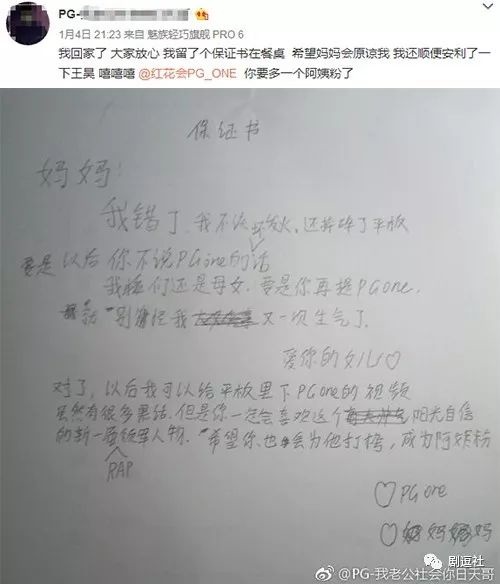 PG-
1月4日 21:23 来自 魅族轻巧旗舰 PRO 6
我回家了 大家放心 我留了个保证书在餐桌 希望妈妈会原谅我 我还顺便安利了一
下王昊 嘻嘻嘻 @红花会PG_ONE 你要多一个阿姨粉了
保证书
妈妈:
我错了,我不该发火,还摔碎了平板
要是以后你不说PGone的话
我们还是母女,要是你再提PGone,
别怪我又一次生气了。
爱你的女儿♡
对了,以后我可以给平板里下PGone的视频
虽然有很多黑话,但是你一定会喜欢这个阳光自信
的新一面领军人物.希望你也会为他打榜,成为阿姨粉
RAP
♡PGone
♡妈妈
@PG-我老公社会你日天哥
剧逗社